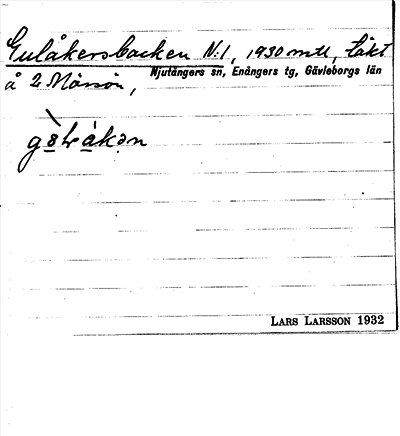 Gulåkersbacken N:1, 1930 mtl, täkt
Njutångers sn, Enångers tg, Gävleborgs län
å 2 Mårsön,
LARS LARSSON 1932